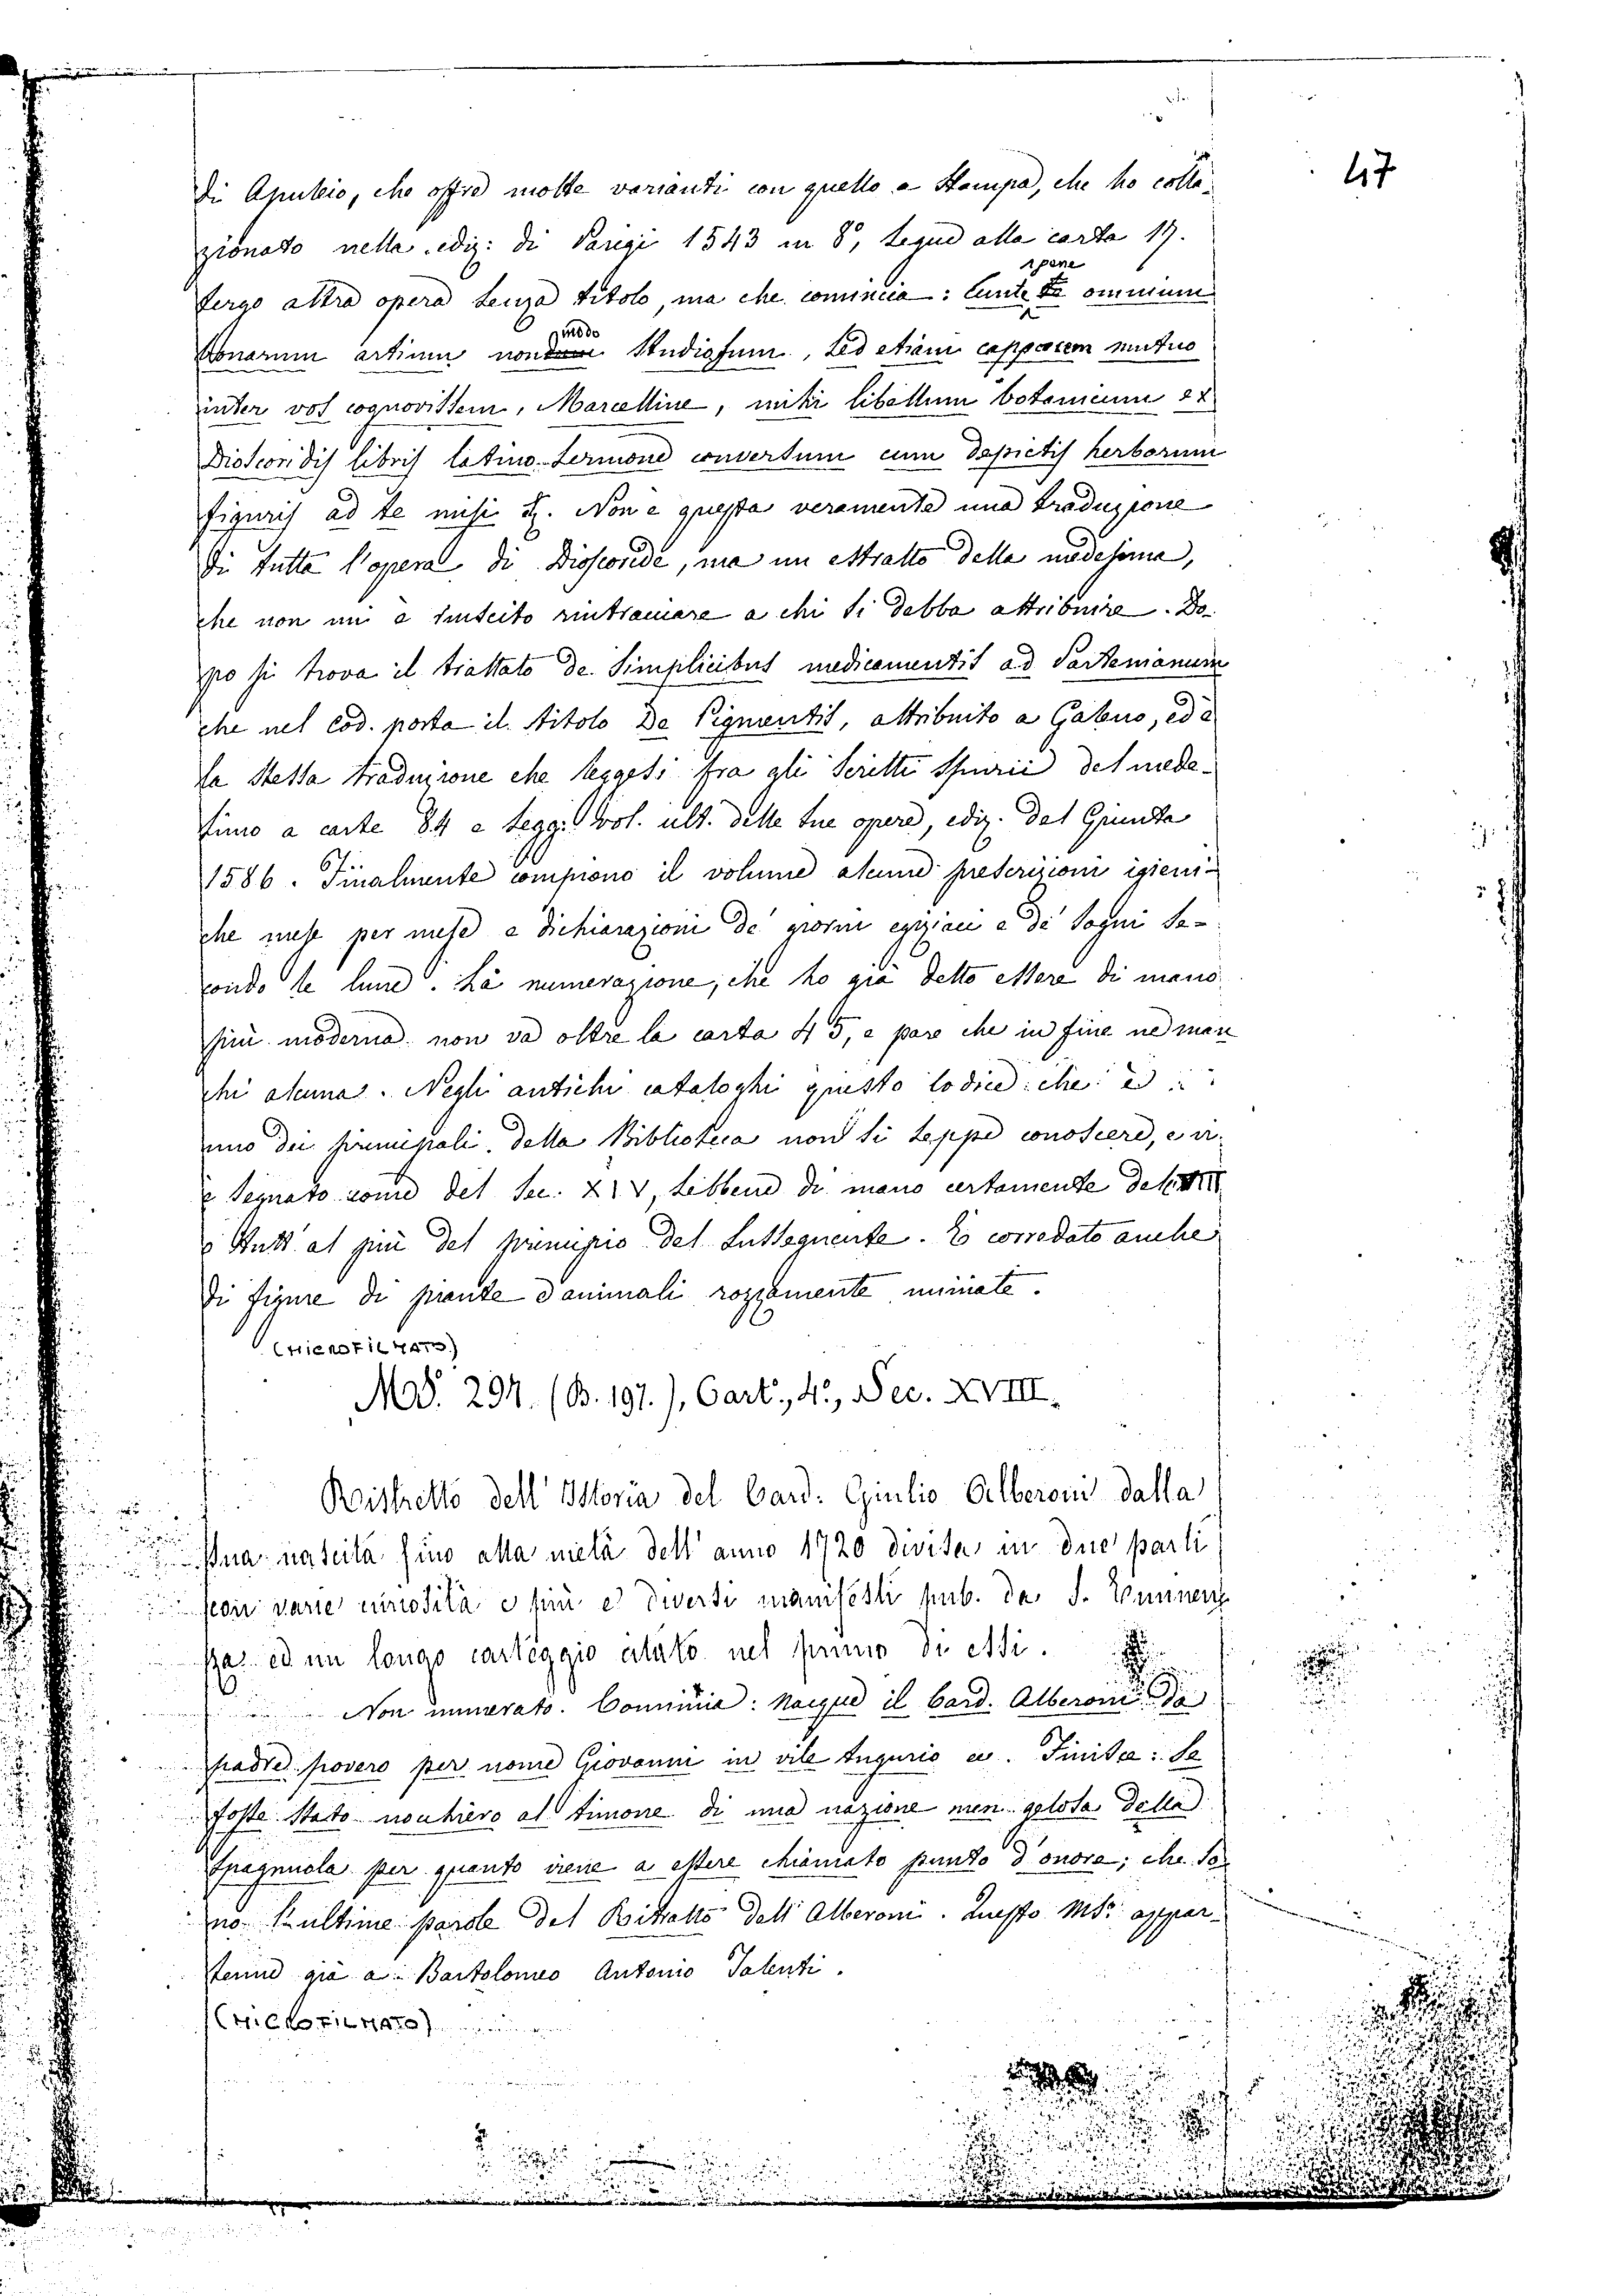 47
di Apuleio, che offre molte varianti con quello a stampa, che ho colla-
zionato nella ediz: di Parigi 1543 in 8°, segue alla carta 17.
tergo altra opera senza titolo, ma che comincia: Cunte te omnium
bonarum artium non modo studiosum, sed etiam capparem mutuo
inter vos cognovissem, Marcelline, mihi libellum botanicum ex
Dioscoridis libris latino sermone conversum cum depictis herbarum
figuris ad te misi &. Non è questa veramente una traduzione
di tutta l'opera di Dioscoride, ma un estratto della medesima,
che non mi è riuscito rintracciare a chi si debba attribuire. Do-
po si trova il trattato de Simplicibus medicamentis ad Paternianum
che nel cod. porta il titolo De Pigmentis, attribuito a Galeno, ed è
la stessa traduzione che leggesi fra gli scritti spurii del mede-
simo a carte 84 e segg. vol. ult. delle sue opere, ediz. del Giunta
1586. Finalmente compiono il volume alcune prescrizioni igieni-
che mese per mese e dichiarazioni de' giorni egiziaci e de' sogni se-
condo le lune. La numerazione, che ho già detto essere di mano
più moderna non va oltre la carta 45, e pare che in fine ne man
chi alcuna. Negli antichi cataloghi questo codice che è
uno dei principali della Biblioteca non si seppe conoscere, e vi
è segnato come del sec. XIV, sebbene di mano certamente del XIII
o tutt' al più del principio del sussequente. È corredato anche
di figure di piante d'animali rozzamente miniate.
(MICROFILMATO)
MS. 297. (B. 197.), Cart., 4°, Sec. XVIII.
Ristretto dell' Istoria del Card: Giulio Alberoni dalla
sua nascita fino alla metà dell' anno 1720 divisa in due parti
con varie curiosità e più e diversi manifesti pub. da S.
za ed un longo carteggio citato nel primo di essi.
Non numerato. Comincia: Nacque il Card. Alberoni da
padre povero per nome Giovanni in vile tugurio ec. Finisce: Se
fosse stato nochiero al timone di una nazione men gelosa della
Spagnuola per quanto viene a essere chiamato punto d'onore; che so-
no l'ultime parole del Ritratto dell' Alberoni. Questo MS: appar-
tenne già a Bartolomeo Antonio Talenti.
(MICROFILMATO)